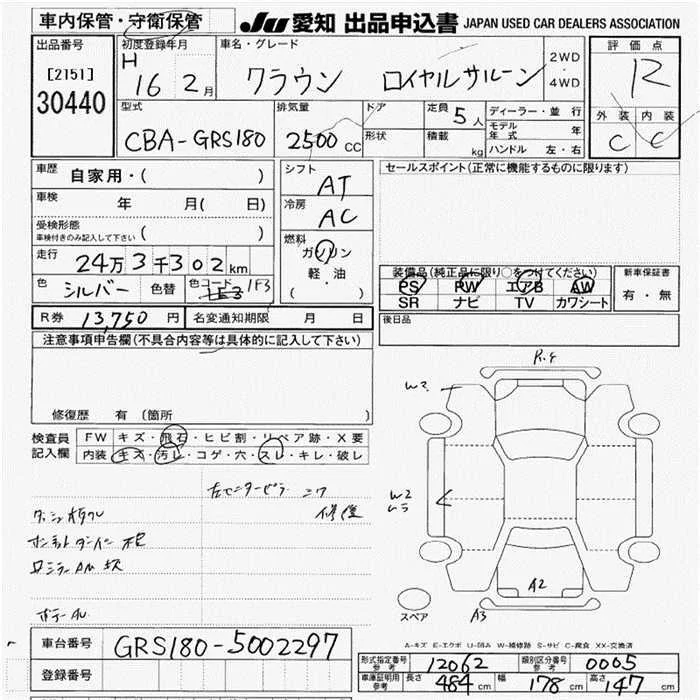 車内保管・守衛保管
JU 愛知 出品申込書 JAPAN USED CAR DEALERS ASSOCIATION
出品番号
[2151]
30440
初度登録年月
H 16 2月
車名・グレード
クラウン ロイヤルサルーン
2WD
・
4WD
評価点
R
外装 内装
C C
型式
CBA-GRS180
排気量
2500 CC
ドア
形状
定員 5人
積載 kg
ディーラー・並行
モデル年式 年
ハンドル 左・右
車歴
自家用・( )
車検 年 月( 日)
受検形態
車検付きのみ記入して下さい ( )
走行
24万3千302km
色 シルバー 色替 色コード 1F3
シフト
AT
冷房
AC
燃料
ガソリン
軽・油
( )
セールスポイント(正常に機能するものに限ります)
装備品(純正品に限り○をつけてください)
PS PW エアB AW
SR ナビ TV カワシート
新車保証書
有・無
R券 13,750円 名変通知期限 月 日
後日品
注意事項申告欄(不具合内容等は具体的に記入して下さい)
修復歴 有 (箇所 )
検査員
記入欄
FW キズ・飛石・ヒビ割・リペア跡・X要
内装 キズ・汚レ・コゲ・穴・スレ・キレ・破レ
修復
R.4
W2
W2
ムラ
A2
A3
スペア
A-キズ E-エクボ U-凹み W-補修跡 S-サビ C-腐食 XX-交換済
車台番号 GRS180-5002297
登録番号
形式指定番号 参考 12062 類別区分番号 参考 0005
車庫証明用 参考 長さ 484cm 幅 178cm 高さ 147cm